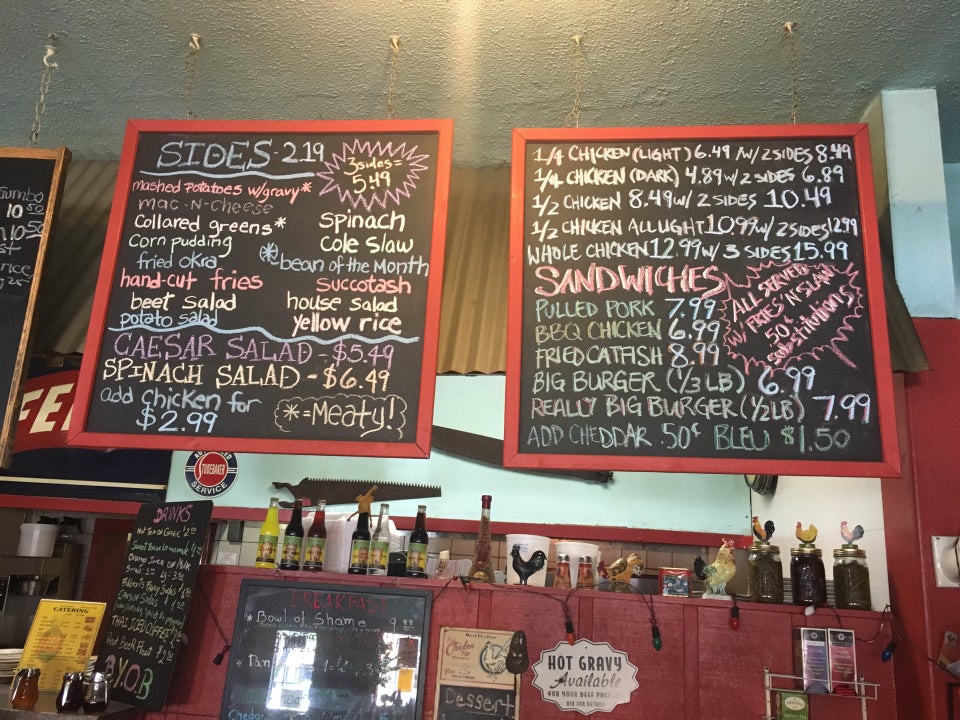 Gumbo
10.50
10.50
rice
SIDES - 2.19
3 sides =
5.49
mashed potatoes w/gravy*
mac-N-cheese
Collared greens*
Corn pudding
fried okra
hand-cut fries
beet salad
potato salad
spinach
cole slaw
*bean of the Month
succotash
house salad
yellow rice
CAESAR SALAD - $5.49
SPINACH SALAD - $6.49
add chicken for
$2.99
*=Meaty!
1/4 CHICKEN (LIGHT) 6.49 /w/ 2 SIDES 8.49
1/4 CHICKEN (DARK) 4.89 w/ 2 SIDES 6.89
1/2 CHICKEN 8.49 w/ 2 SIDES 10.49
1/2 CHICKEN ALL LIGHT 10.99 w/ 2 SIDES 12.99
WHOLE CHICKEN 12.99 w/ 3 SIDES 15.99
SANDWICHES
ALL SERVED
W/ FRIES 'N' SLAW
50¢
Substitutions
PULLED PORK 7.99
BBQ CHICKEN 6.99
FRIED CATFISH 8.99
BIG BURGER (1/3 LB) 6.99
REALLY BIG BURGER (1/2 LB) 7.99
ADD CHEDDAR 50¢ BLEU $1.50
FE
STUDEBAKER
SERVICE
DRINKS
THAI ICED COFFEE
Root Beer Float
B.Y.O.B
CATERING
BREAKFAST
*Bowl of Shame 9.99
Chicken
Dessert
HOT GRAVY
Available
FOR YOUR BEEF
ASK FOR DETAILS